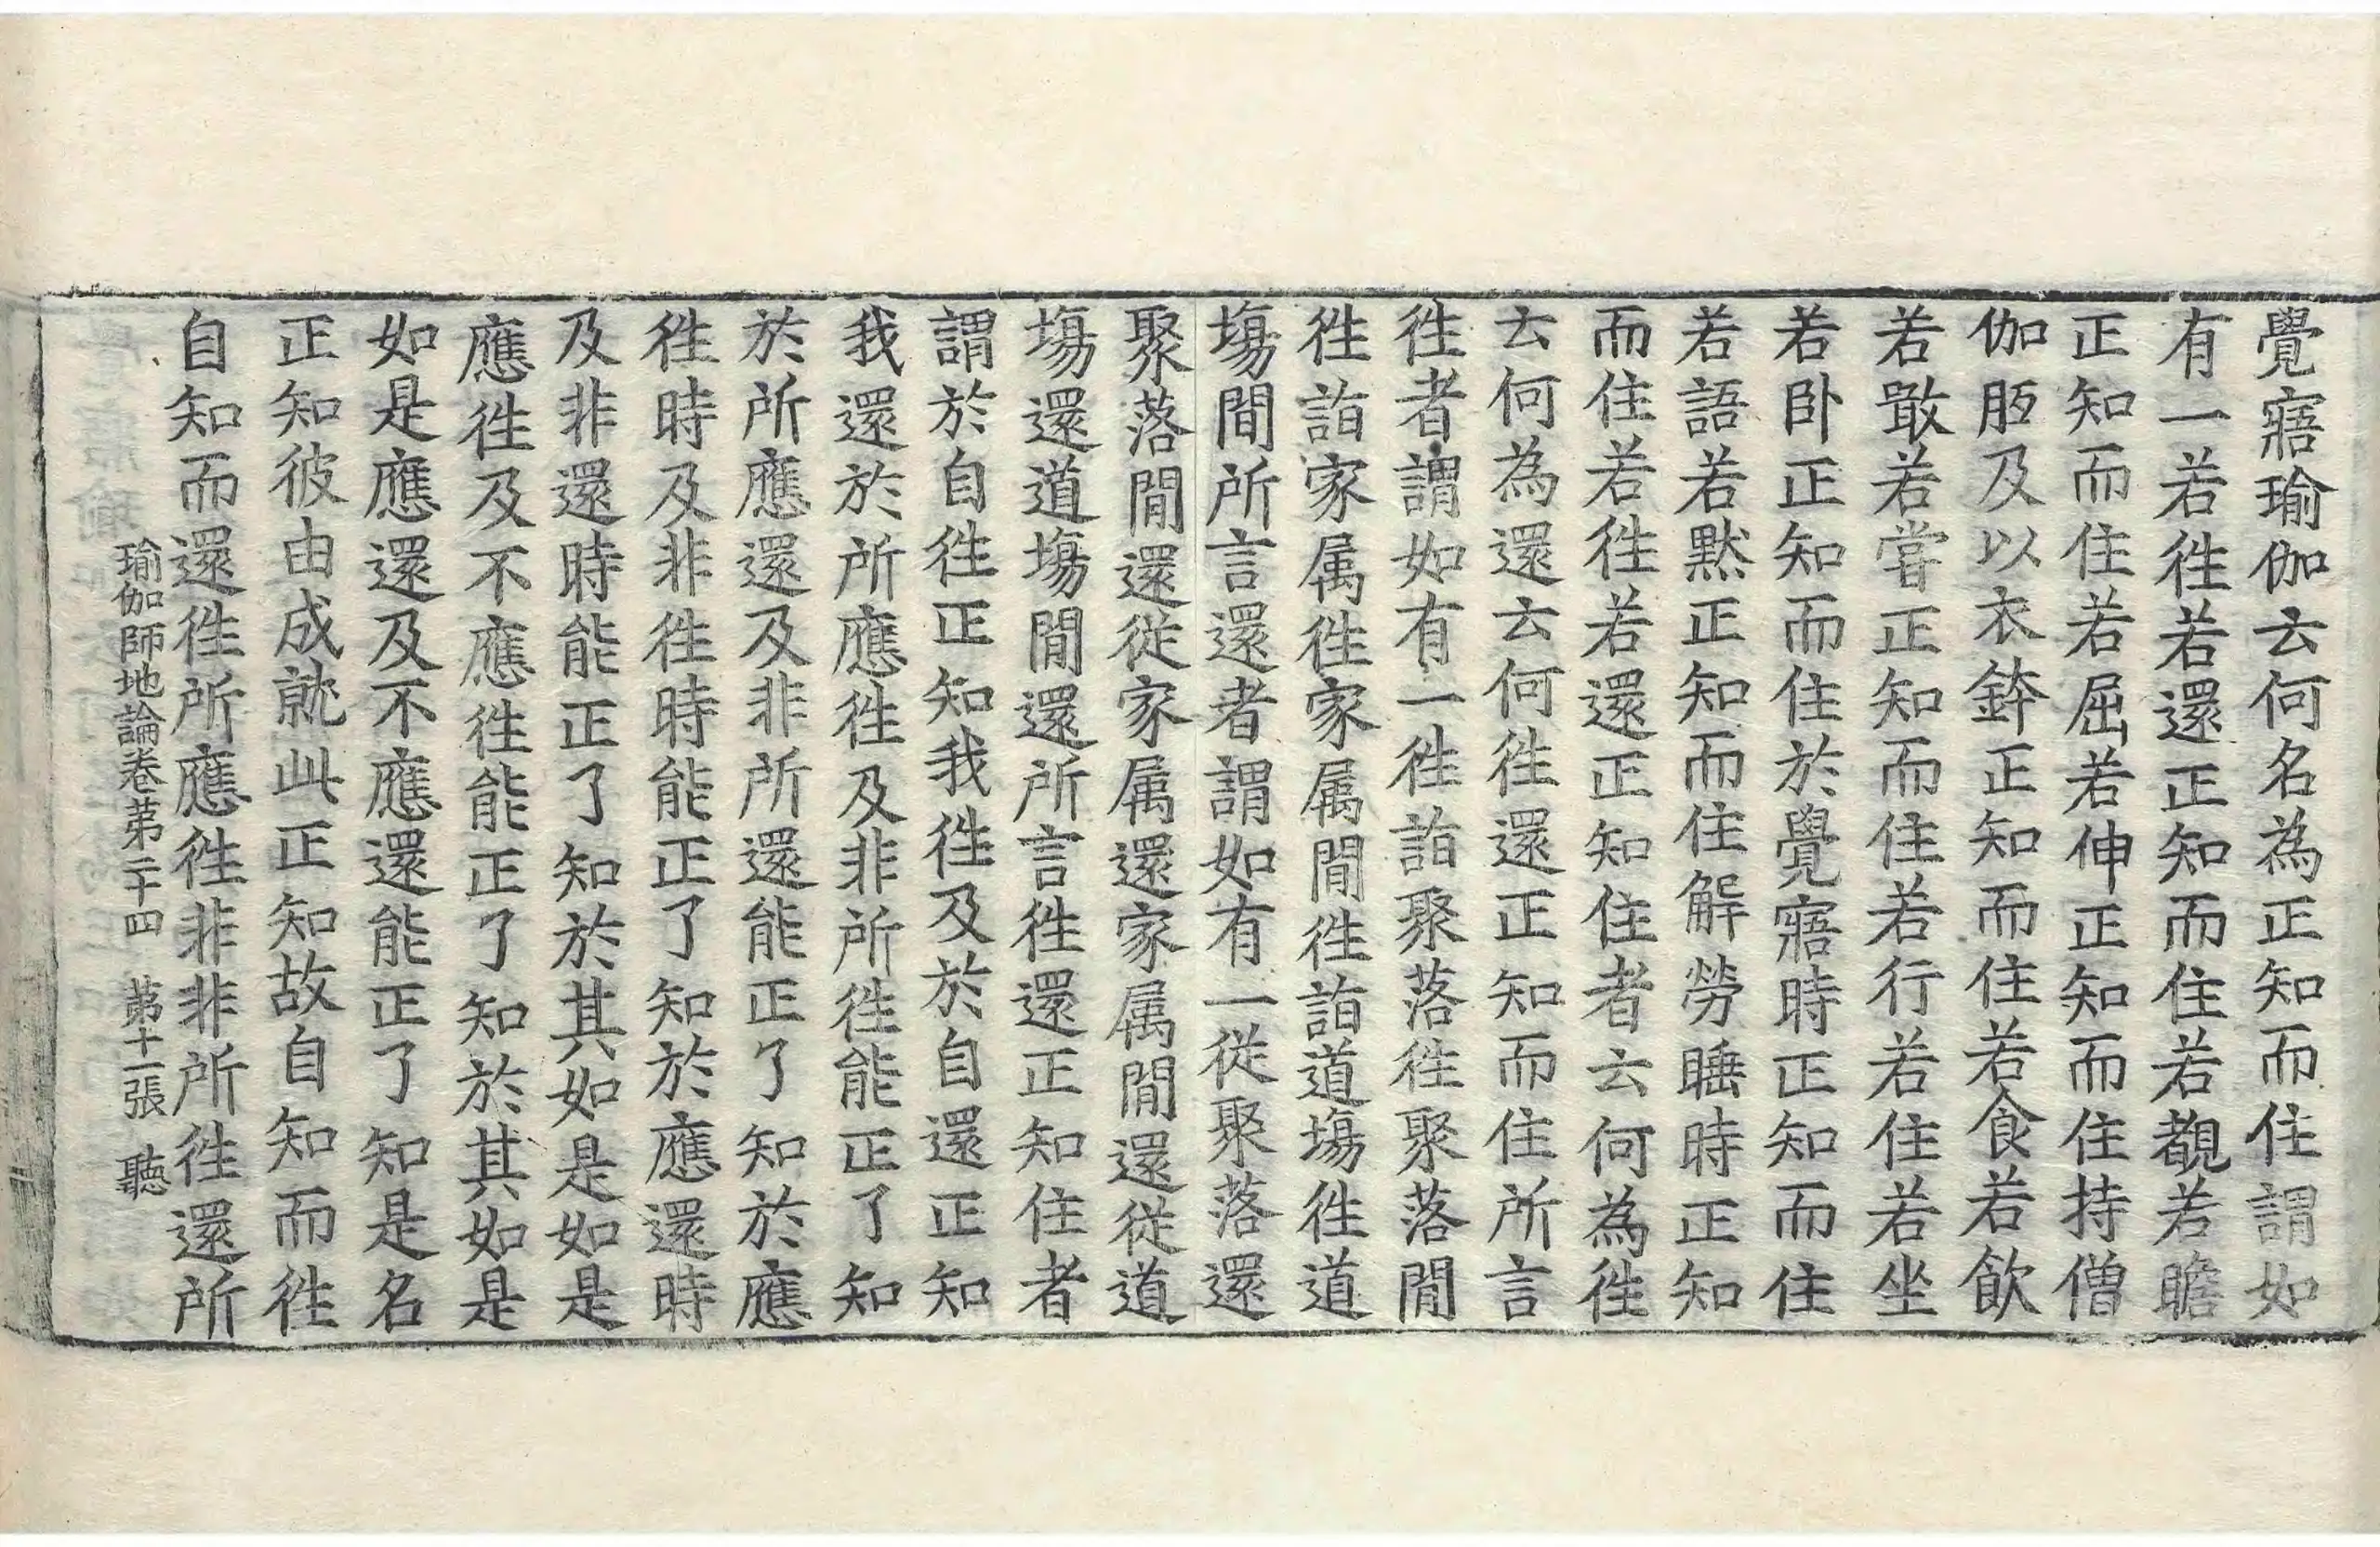 覺寤瑜伽云何名為正知而住謂如
有一若徃若還正知而住若覩若瞻
正知而住若屈若伸正知而住持僧
伽胝及以衣鉢正知而住若食若飲
若噉若嘗正知而住若行若住若坐
若卧正知而住於覺寤時正知而住
若語若黙正知而住解勞睡時正知
而住若徃若還正知住者云何為徃
云何為還云何徃還正知而住所言
徃者謂如有一徃詣聚落徃聚落間
徃詣家属徃家属間徃詣道塲徃道
塲間所言還者謂如有一從聚落還
聚落間還從家属還家属間還従道
塲還道塲間還所言徃還正知住者
謂於自徃正知我徃及於自還正知
我還於所應徃及非所徃能正了知
於所應還及非所還能正了知於應
徃時及非徃時能正了知於應還時
及非還時能正了知於其如是如是
應徃及不應徃能正了知於其如是
如是應還及不應還能正了知是名
正知彼由成就此正知故自知而徃
自知而還徃所應徃非非所徃還所
瑜伽師地論卷苐二十四　苐十一張　聽